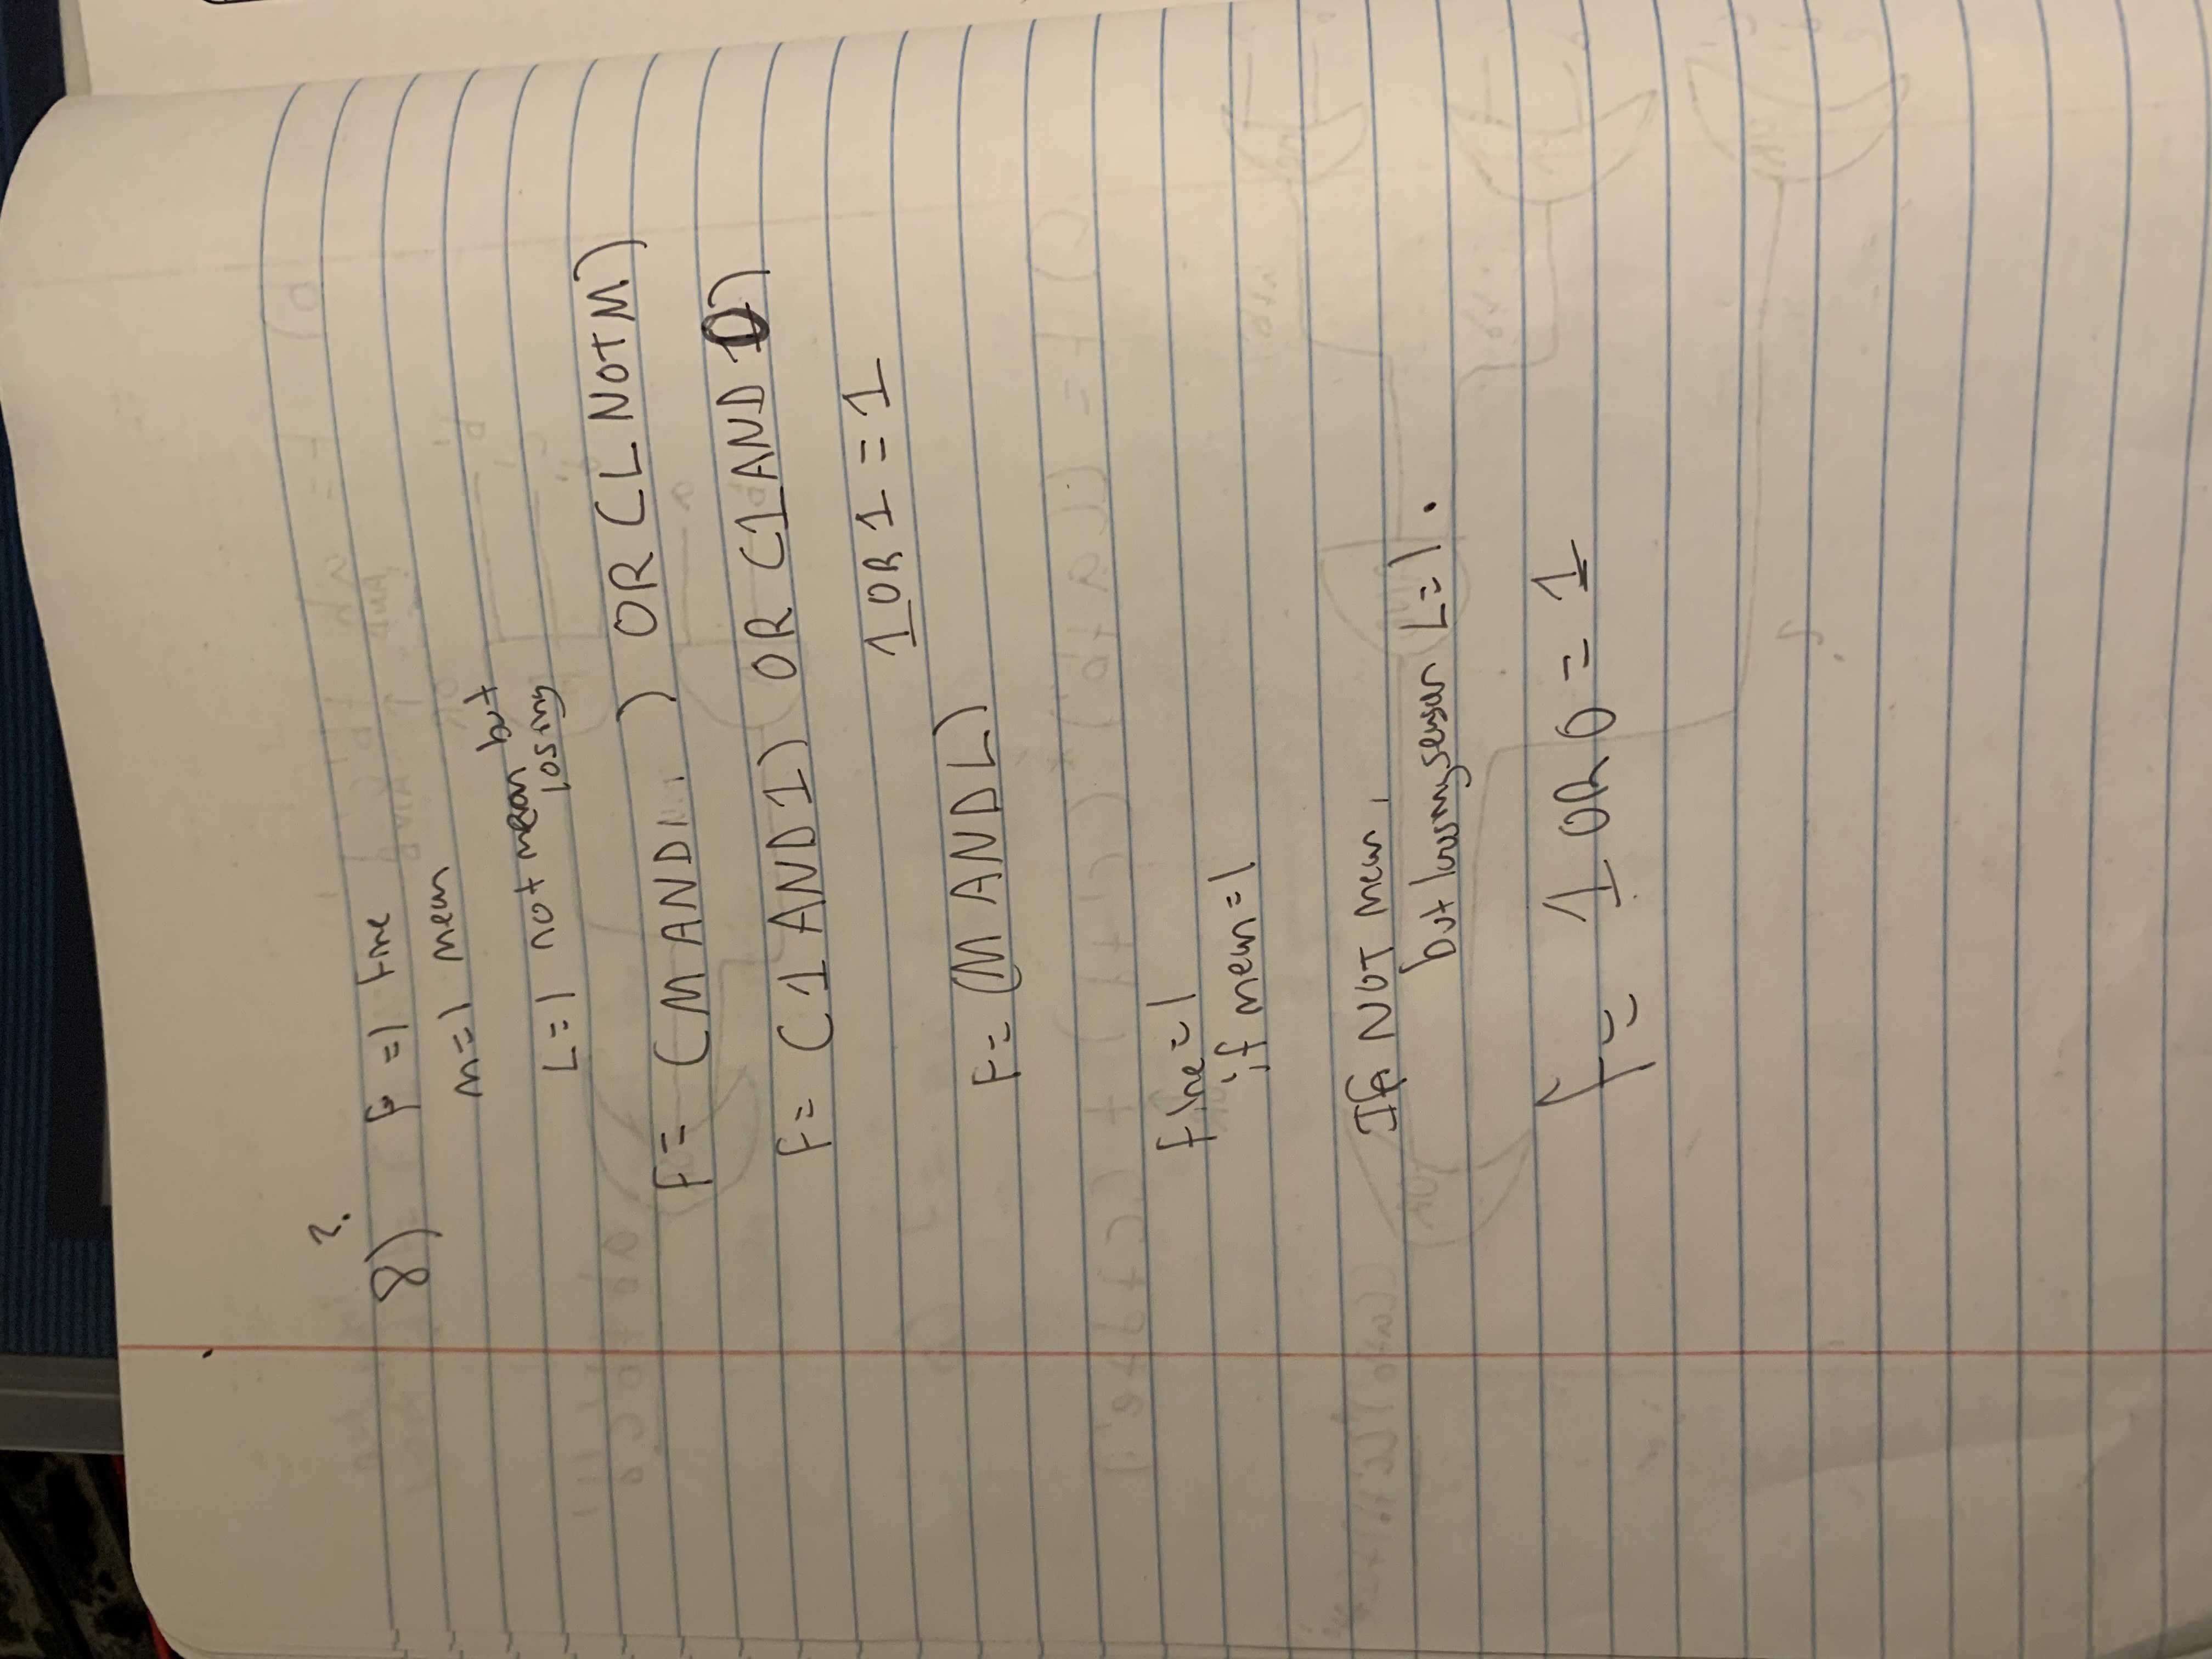 ?
8) F=1 fine
m=1 mean
L=1 not mean but
losing
F= (M AND ) OR (L NOT M)
F= (1 AND 1) OR (1 AND 0)
1 OR 1 = 1
F= (M AND L)
fine=1
if mean=1
If NOT mean,
but losing season L=1.
f= 1 OR 0 = 1